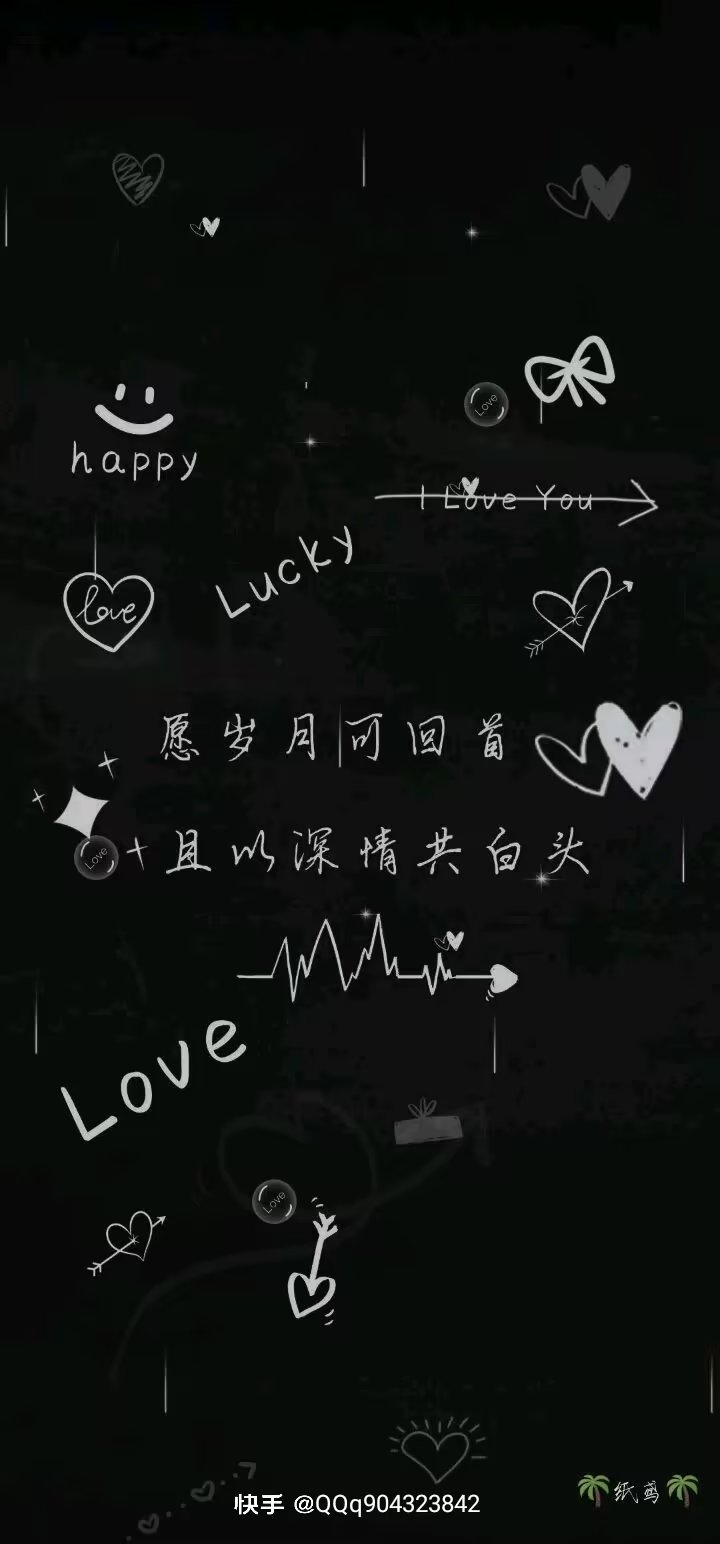 Love
happy
I Love You
Lucky
love
愿岁月可回首
Love
且以深情共白头
Love
Love
纸鸢
快手 @QQq904323842